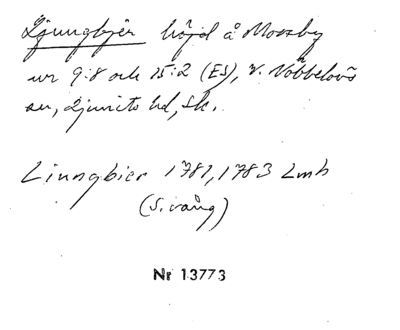 Ljungbjer höjd å Mossby
ur 9:8 och 15:2 (ES), V. Nöbbelövs
sn, Ljunits hd, Sk.
Liungbier 1781, 1783 Lmh
(S. vång)
Nr 13773